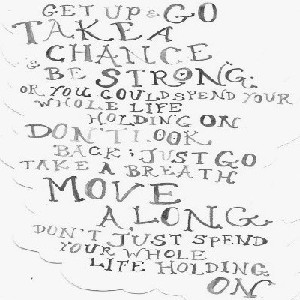 GET UP & GO
TAKE A
CHANCE
& BE STRONG:
OR YOU COULD SPEND YOUR
WHOLE LIFE
HOLDING ON
DON'T LOOK
BACK; JUST GO
TAKE A BREATH
MOVE
ALONG
DON'T JUST SPEND
YOUR WHOLE
LIFE HOLDING
ON